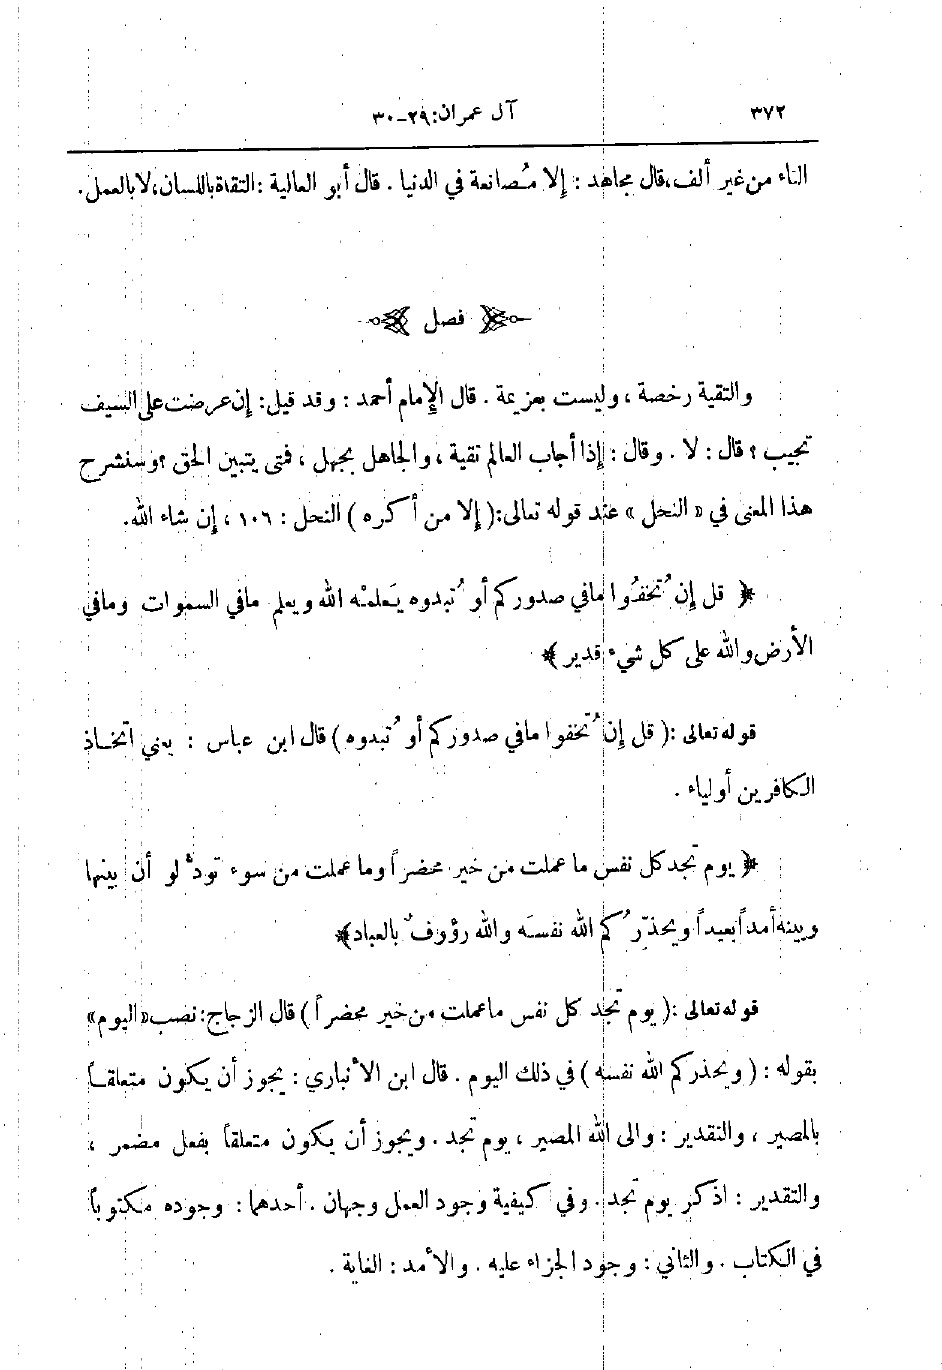 ٣٧٢ آل عمران: ٢٩-٣٠
التاء من غير ألف، قال مجاهد : إلا مُصانعة في الدنيا . قال أبو العالية : التقاة باللسان، لا بالعمل .
فصل
والتقية رخصة ، وليست بعزيمة . قال الإمام أحمد : وقد قيل : إن عرضت على السيف
تجيب ؟ قال : لا . وقال : إذا أجاب العالم تقية ، والجاهل بجهل ، فمتى يتبين الحق ؟ وسنشرح
هذا المعنى في « النحل » عند قوله تعالى: ( إلا من أكره ) النحل : ١٠٦ ، إن شاء الله .
﴿ قل إن تُخفُوا ما في صدوركم أو تُبدوه يَعلمْه الله ويعلم ما في السموات وما في
الأرض والله على كل شيء قدير ﴾
قوله تعالى : ( قل إن تُخفوا ما في صدوركم أو تُبدوه ) قال ابن عباس : يعني اتخاذ
الكافرين أولياء .
﴿ يوم تجد كل نفس ما عملت من خير محضراً وما عملت من سوء تودُّ لو أن بينها
وبينه أمداً بعيداً ويحذّرُكم الله نفسَه والله رؤوفٌ بالعباد ﴾
قوله تعالى : ( يوم تجد كل نفس ما عملت من خير محضراً ) قال الزجاج : نصب « اليوم »
بقوله : ( ويحذركم الله نفسه ) في ذلك اليوم . قال ابن الأنباري : يجوز أن يكون متعلقاً
بالمصير ، والتقدير : وإلى الله المصير ، يوم تجد . ويجوز أن يكون متعلقاً بفعل مضمر ،
والتقدير : اذكر يوم تجد . وفي كيفية وجود العمل وجهان . أحدهما : وجوده مكتوباً
في الكتاب . والثاني : وجود الجزاء عليه . والأمد : الغاية .